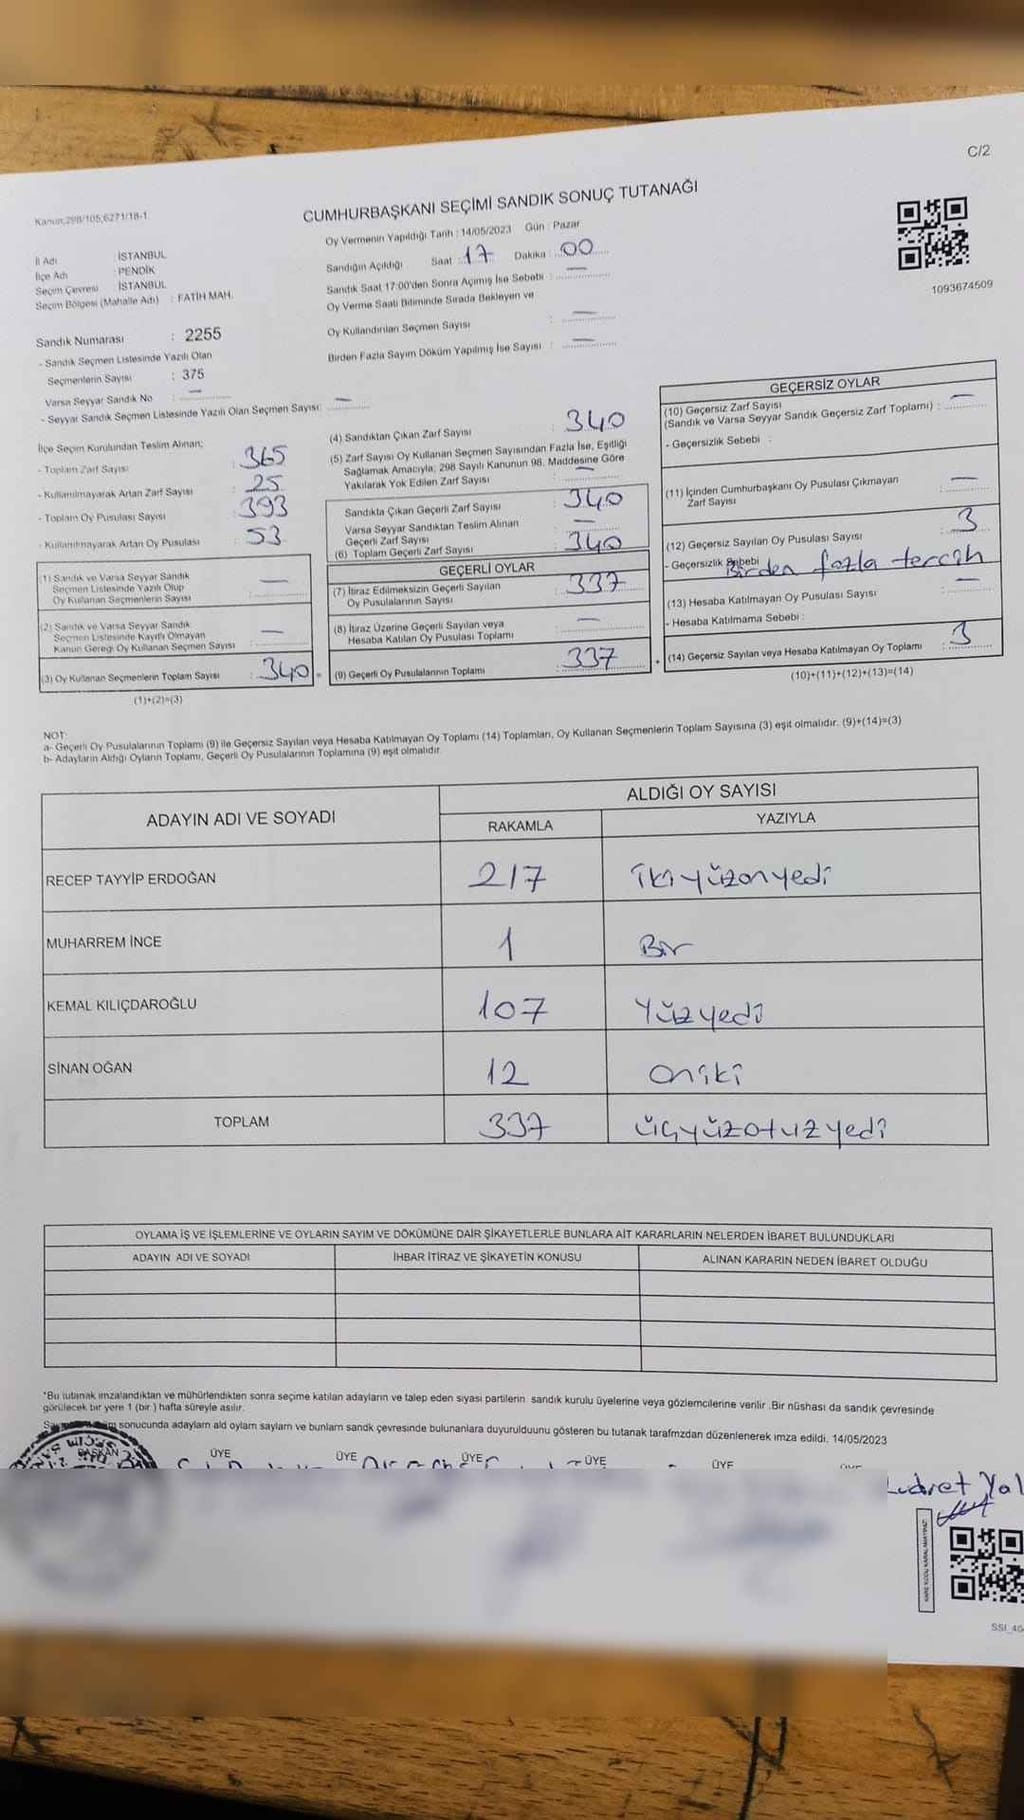 C/2
Kanun:298/105,6271/18-1
CUMHURBAŞKANI SEÇİMİ SANDIK SONUÇ TUTANAĞI
1093674509
İl Adı : İSTANBUL
İlçe Adı : PENDİK
Seçim Çevresi : İSTANBUL
Seçim Bölgesi (Mahalle Adı) : FATİH MAH.
Sandık Numarası : 2255
- Sandık Seçmen Listesinde Yazılı Olan
Seçmenlerin Sayısı : 375
Varsa Seyyar Sandık No : —
- Seyyar Sandık Seçmen Listesinde Yazılı Olan Seçmen Sayısı: —
Oy Vermenin Yapıldığı Tarih : 14/05/2023 Gün : Pazar
Sandığın Açıldığı Saat : 17 Dakika : 00
Sandık Saat 17:00'den Sonra Açımış İse Sebebi : —
Oy Verme Saati Bitiminde Sırada Bekleyen ve
Oy Kullandırılan Seçmen Sayısı : —
Birden Fazla Sayım Döküm Yapılmış İse Sayısı : —
İlçe Seçim Kurulundan Teslim Alınan;
- Toplam Zarf Sayısı : 365
- Kullanılmayarak Artan Zarf Sayısı : 25
- Toplam Oy Pusulası Sayısı : 393
- Kullanılmayarak Artan Oy Pusulası : 53
(1) Sandık ve Varsa Seyyar Sandık
Seçmen Listesinde Yazılı Olup
Oy Kullanan Seçmenlerin Sayısı : —
(2) Sandık ve Varsa Seyyar Sandık
Seçmen Listesinde Kayıtlı Olmayan
Kanun Gereği Oy Kullanan Seçmen Sayısı : —
(3) Oy Kullanan Seçmenlerin Toplam Sayısı : 340
(1)+(2)=(3)
(4) Sandıktan Çıkan Zarf Sayısı 340
(5) Zarf Sayısı Oy Kullanan Seçmen Sayısından Fazla İse, Eşitliği
Sağlamak Amacıyla; 298 Sayılı Kanunun 98. Maddesine Göre
Yakılarak Yok Edilen Zarf Sayısı : —
Sandıkta Çıkan Geçerli Zarf Sayısı : 340
Varsa Seyyar Sandıktan Teslim Alınan
Geçerli Zarf Sayısı : —
(6) Toplam Geçerli Zarf Sayısı : 340
GEÇERLİ OYLAR
(7) İtiraz Edilmeksizin Geçerli Sayılan
Oy Pusulalarının Sayısı : 337
(8) İtiraz Üzerine Geçerli Sayılan veya
Hesaba Katılan Oy Pusulası Toplamı : —
(9) Geçerli Oy Pusulalarının Toplamı : 337
GEÇERSİZ OYLAR
(10) Geçersiz Zarf Sayısı
(Sandık ve Varsa Seyyar Sandık Geçersiz Zarf Toplamı) : —
- Geçersizlik Sebebi :
(11) İçinden Cumhurbaşkanı Oy Pusulası Çıkmayan
Zarf Sayısı : —
(12) Geçersiz Sayılan Oy Pusulası Sayısı : 3
- Geçersizlik Sebebi Birden fazla tercih
(13) Hesaba Katılmayan Oy Pusulası Sayısı : —
- Hesaba Katılmama Sebebi :
(14) Geçersiz Sayılan veya Hesaba Katılmayan Oy Toplamı : 3
(10)+(11)+(12)+(13)=(14)
NOT:
a- Geçerli Oy Pusulalarının Toplamı (9) ile Geçersiz Sayılan veya Hesaba Katılmayan Oy Toplamı (14) Toplamları, Oy Kullanan Seçmenlerin Toplam Sayısına (3) eşit olmalıdır. (9)+(14)=(3)
b- Adayların Aldığı Oyların Toplamı, Geçerli Oy Pusulalarının Toplamına (9) eşit olmalıdır.
ADAYIN ADI VE SOYADI
ALDIĞI OY SAYISI
RAKAMLA YAZIYLA
RECEP TAYYİP ERDOĞAN 217 ikiyüzonyedi
MUHARREM İNCE 1 Bir
KEMAL KILIÇDAROĞLU 107 Yüzyedi
SİNAN OĞAN 12 oniki
TOPLAM 337 üçyüzotuzyedi
OYLAMA İŞ VE İŞLEMLERİNE VE OYLARIN SAYIM VE DÖKÜMÜNE DAİR ŞİKAYETLERLE BUNLARA AİT KARARLARIN NELERDEN İBARET BULUNDUKLARI
ADAYIN ADI VE SOYADI İHBAR İTİRAZ VE ŞİKAYETİN KONUSU ALINAN KARARIN NEDEN İBARET OLDUĞU
*Bu tutanak imzalandıktan ve mühürlendikten sonra seçime katılan adayların ve talep eden siyasi partilerin sandık kurulu üyelerine veya gözlemcilerine verilir .Bir nüshası da sandık çevresinde
görülecek bir yere 1 (bir ) hafta süreyle asılır.
sonucunda adayların ald oyların sayların ve bunların sandk çevresinde bulunanlara duyurulduunu gösteren bu tutanak tarafmzdan düzenlenerek imza edildi. 14/05/2023
BAŞKAN ÜYE ÜYE ÜYE ÜYE ÜYE